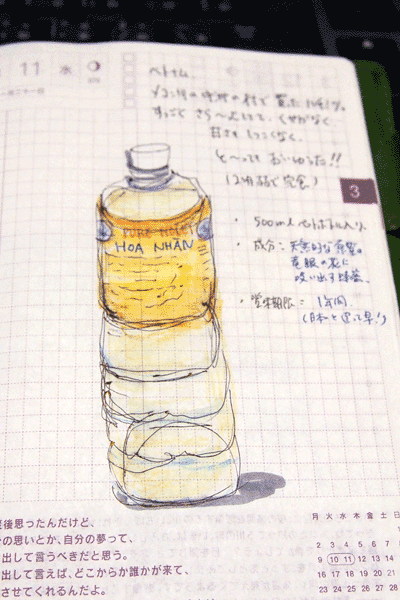 11 水
ベトナム
メコン川の中州の村で買ったハチミツ。
すっごく さら〜 くせがなく、
甘さも しつこくなく、
と〜っても おいしかった!!
(2週間で完食)
3
PURE HONEY
HOA NHÃN
・500mlペットボトル入り。
・成分:天然的な蜂蜜。
竜眼の花に
吸い出す蜂蜜。
・賞味期限 = 1年間
(日本と違って早!)
後思ったんだけど、
の思いとか、自分の夢って、
出して言うべきだと思う。
出して言えば、どこからか誰かが来て、
させてくれるんだよ。
月 火 水 木 金 土 日
2 3 4 5 6 7
9 10 11 12 13 14
16 17 18 19 20 21
23 24 25 26 27 28
30 31